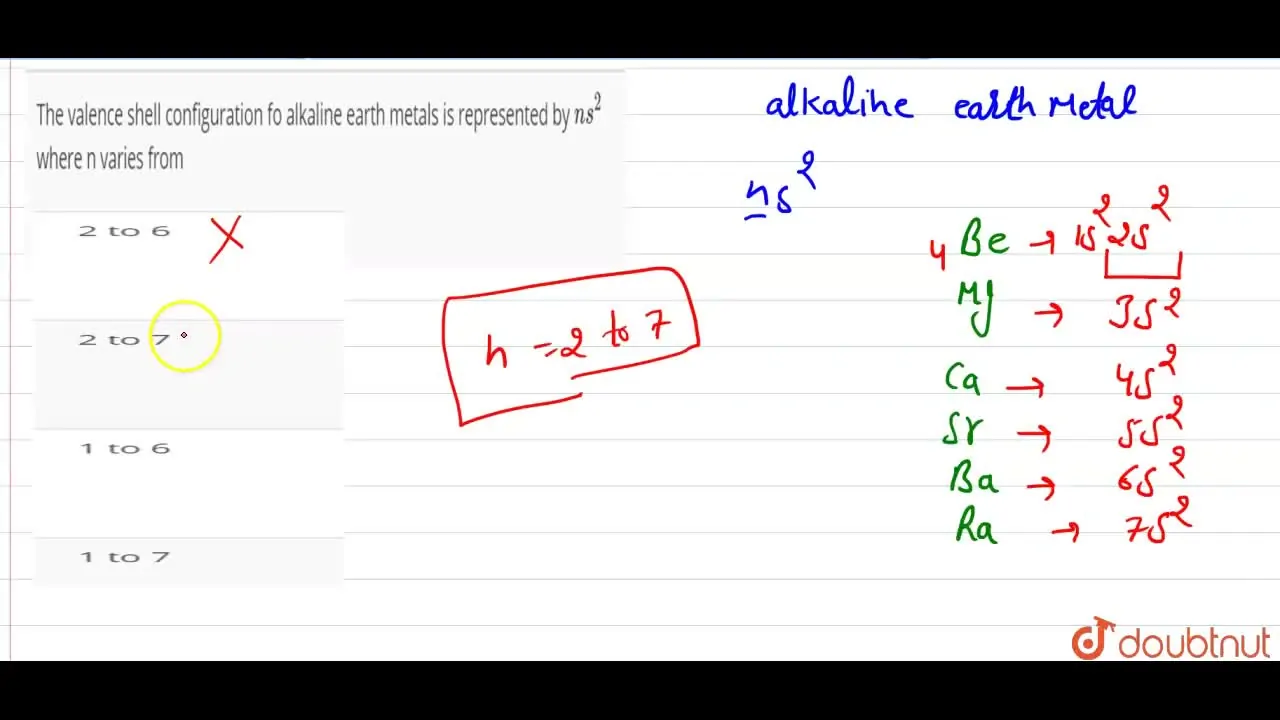 The valence shell configuration fo alkaline earth metals is represented by ns²
where n varies from
2 to 6 X
2 to 7
1 to 6
1 to 7
n = 2 to 7
alkaline earth Metal
ns²
4 Be → 1s² 2s²
Mg → 3s²
Ca → 4s²
Sr → 5s²
Ba → 6s²
Ra → 7s²
doubtnut